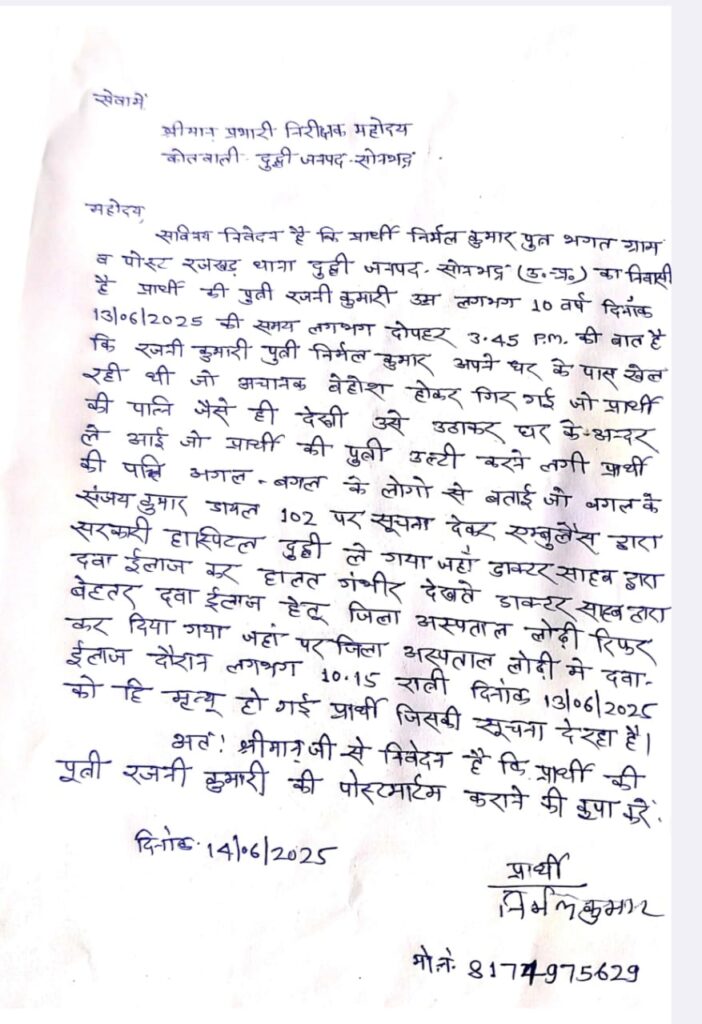 सेवामें
श्रीमान् प्रभारी निरीक्षक महोदय
कोतवाली दुद्धी जनपद-सोनभद्र
महोदय,
सविनय निवेदन है कि प्रार्थी निर्मल कुमार पुत्र भगत ग्राम
व पोस्ट रजखड़ थाना दुद्धी जनपद-सोनभद्र (उ.प्र.) का निवासी
है प्रार्थी की पुत्री रजनी कुमारी उम्र लगभग 10 वर्ष दिनांक
13/06/2025 की समय लगभग दोपहर 3.45 P.m. की बात है
कि रजनी कुमारी पुत्री निर्मल कुमार अपने घर के पास खेल
रही थी जो अचानक बेहोश होकर गिर गई जो प्रार्थी
की पत्नि जैसे ही देखी उसे उठाकर घर के-अन्दर
ले आई जो प्रार्थी की पुत्री उल्टी करने लगी प्रार्थी
की पत्नि अगल-बगल के लोगो से बताई जो बगल के
संजय कुमार डायल 102 पर सूचना देकर एम्बुलेंस द्वारा
सरकारी हास्पिटल दुद्धी ले गया जहाँ डाक्टर साहब द्वारा
दवा ईलाज कर हालत गंभीर देखते डाक्टर साहब द्वारा
बेहतर दवा ईलाज हेतू जिला अस्पताल लोढ़ी रिफर
कर दिया गया जहां पर जिला अस्पताल लोढ़ी मे दवा-
ईलाज दौरान लगभग 10.15 रात्री दिनांक 13/06/2025
को हि मृत्यू हो गई प्रार्थी जिसकी सूचना दे रहा है।
अतः! श्रीमान् जी से निवेदन है कि प्रार्थी की
पुत्री रजनी कुमारी की पोस्टमार्टम कराने की कृपा करें.
दिनांक-14/06/2025
प्रार्थी
निर्मल कुमार
मो.नं. 8174975629